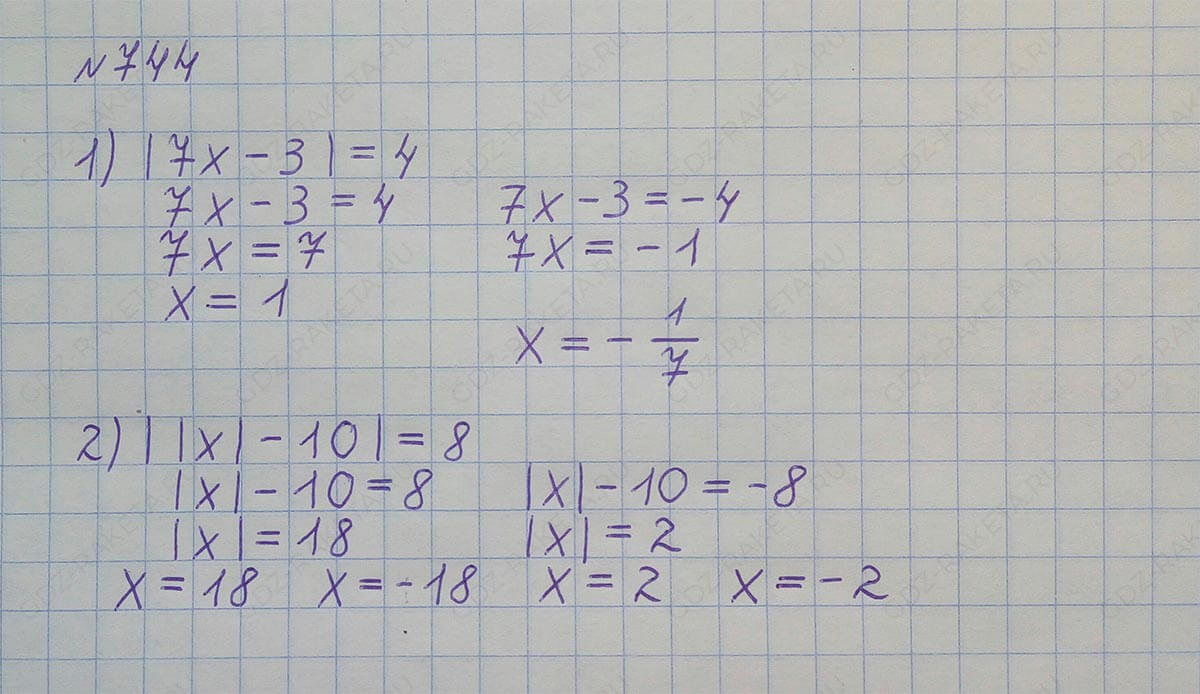 №744
1) |7x - 3| = 4
7x - 3 = 4    7x - 3 = - 4
7x = 7    7x = - 1
x = 1    x = - 1/7
2) ||x| - 10| = 8
|x| - 10 = 8    |x| - 10 = - 8
|x| = 18    |x| = 2
x = 18    x = - 18    x = 2    x = - 2
GDZ-RAKETA.RU